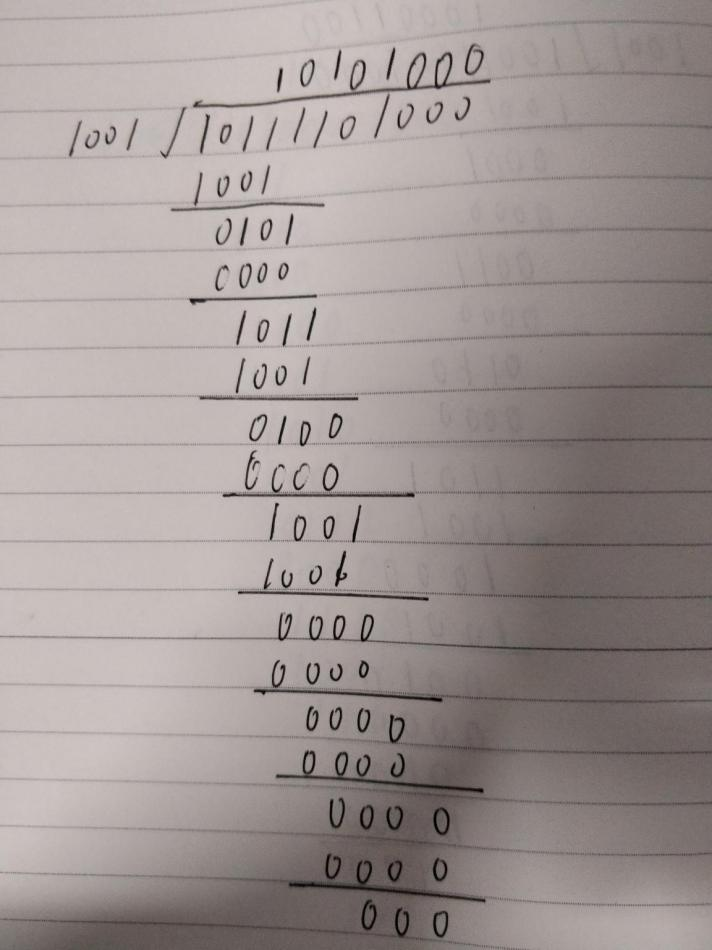 10101000
1001 / 10111101000
1001
0101
0000
1011
1001
0100
0000
1001
1001
0000
0000
0000
0000
0000
0000
000